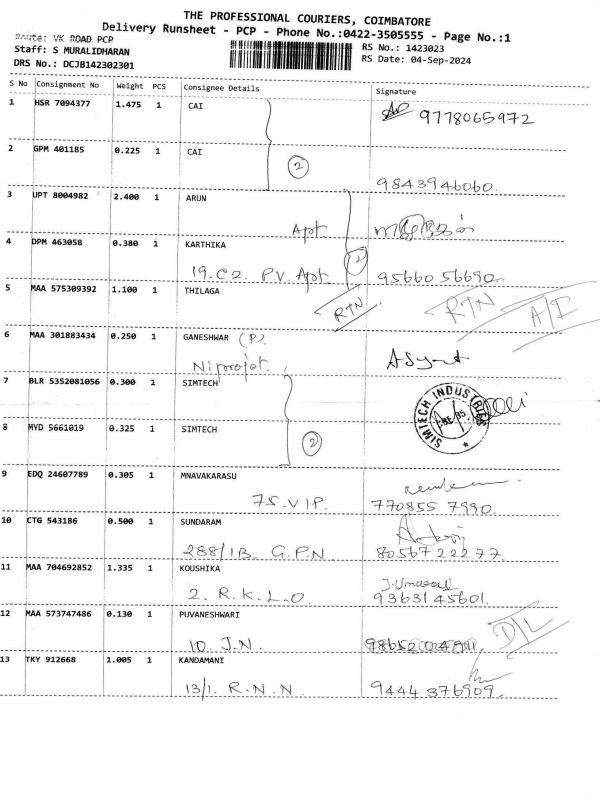 THE PROFESSIONAL COURIERS, COIMBATORE
Delivery Runsheet - PCP - Phone No.:0422-3505555 - Page No.:1
Route: VK ROAD PCP
Staff: S MURALIDHARAN RS No.: 1423023
DRS No.: DCJB142302301 RS Date: 04-Sep-2024
S No Consignment No Weight PCS Consignee Details Signature
1 HSR 7094377 1.475 1 CAI 9778065972
2 GPM 401185 0.225 1 CAI
2
9843946060.
3 UPT 8004982 2.400 1 ARUN
Apt
4 DPM 463058 0.380 1 KARTHIKA
19.C2 PV. Apt 9566056690.
5 MAA 575309392 1.100 1 THILAGA RTN RTN A/F
6 MAA 301883434 0.250 1 GANESHWAR (P)
7 BLR 5352081056 0.300 1 SIMTECH
SIMTECH INDUSTRIES
8 MYD 5661019 0.325 1 SIMTECH
2
9 EDQ 24607789 0.305 1 MNAVAKARASU
75.VIP. 770855 7990.
10 CTG 543186 0.500 1 SUNDARAM
288/1B G.P.N 8056722277
11 MAA 704692852 1.335 1 KOUSHIKA
2. R.K.L.O. 9363145601.
12 MAA 573747486 0.130 1 PUVANESHWARI D/L
10 J.N.
13 TKY 912668 1.005 1 KANDAMANI
13/1. R.N.N 9444376909.